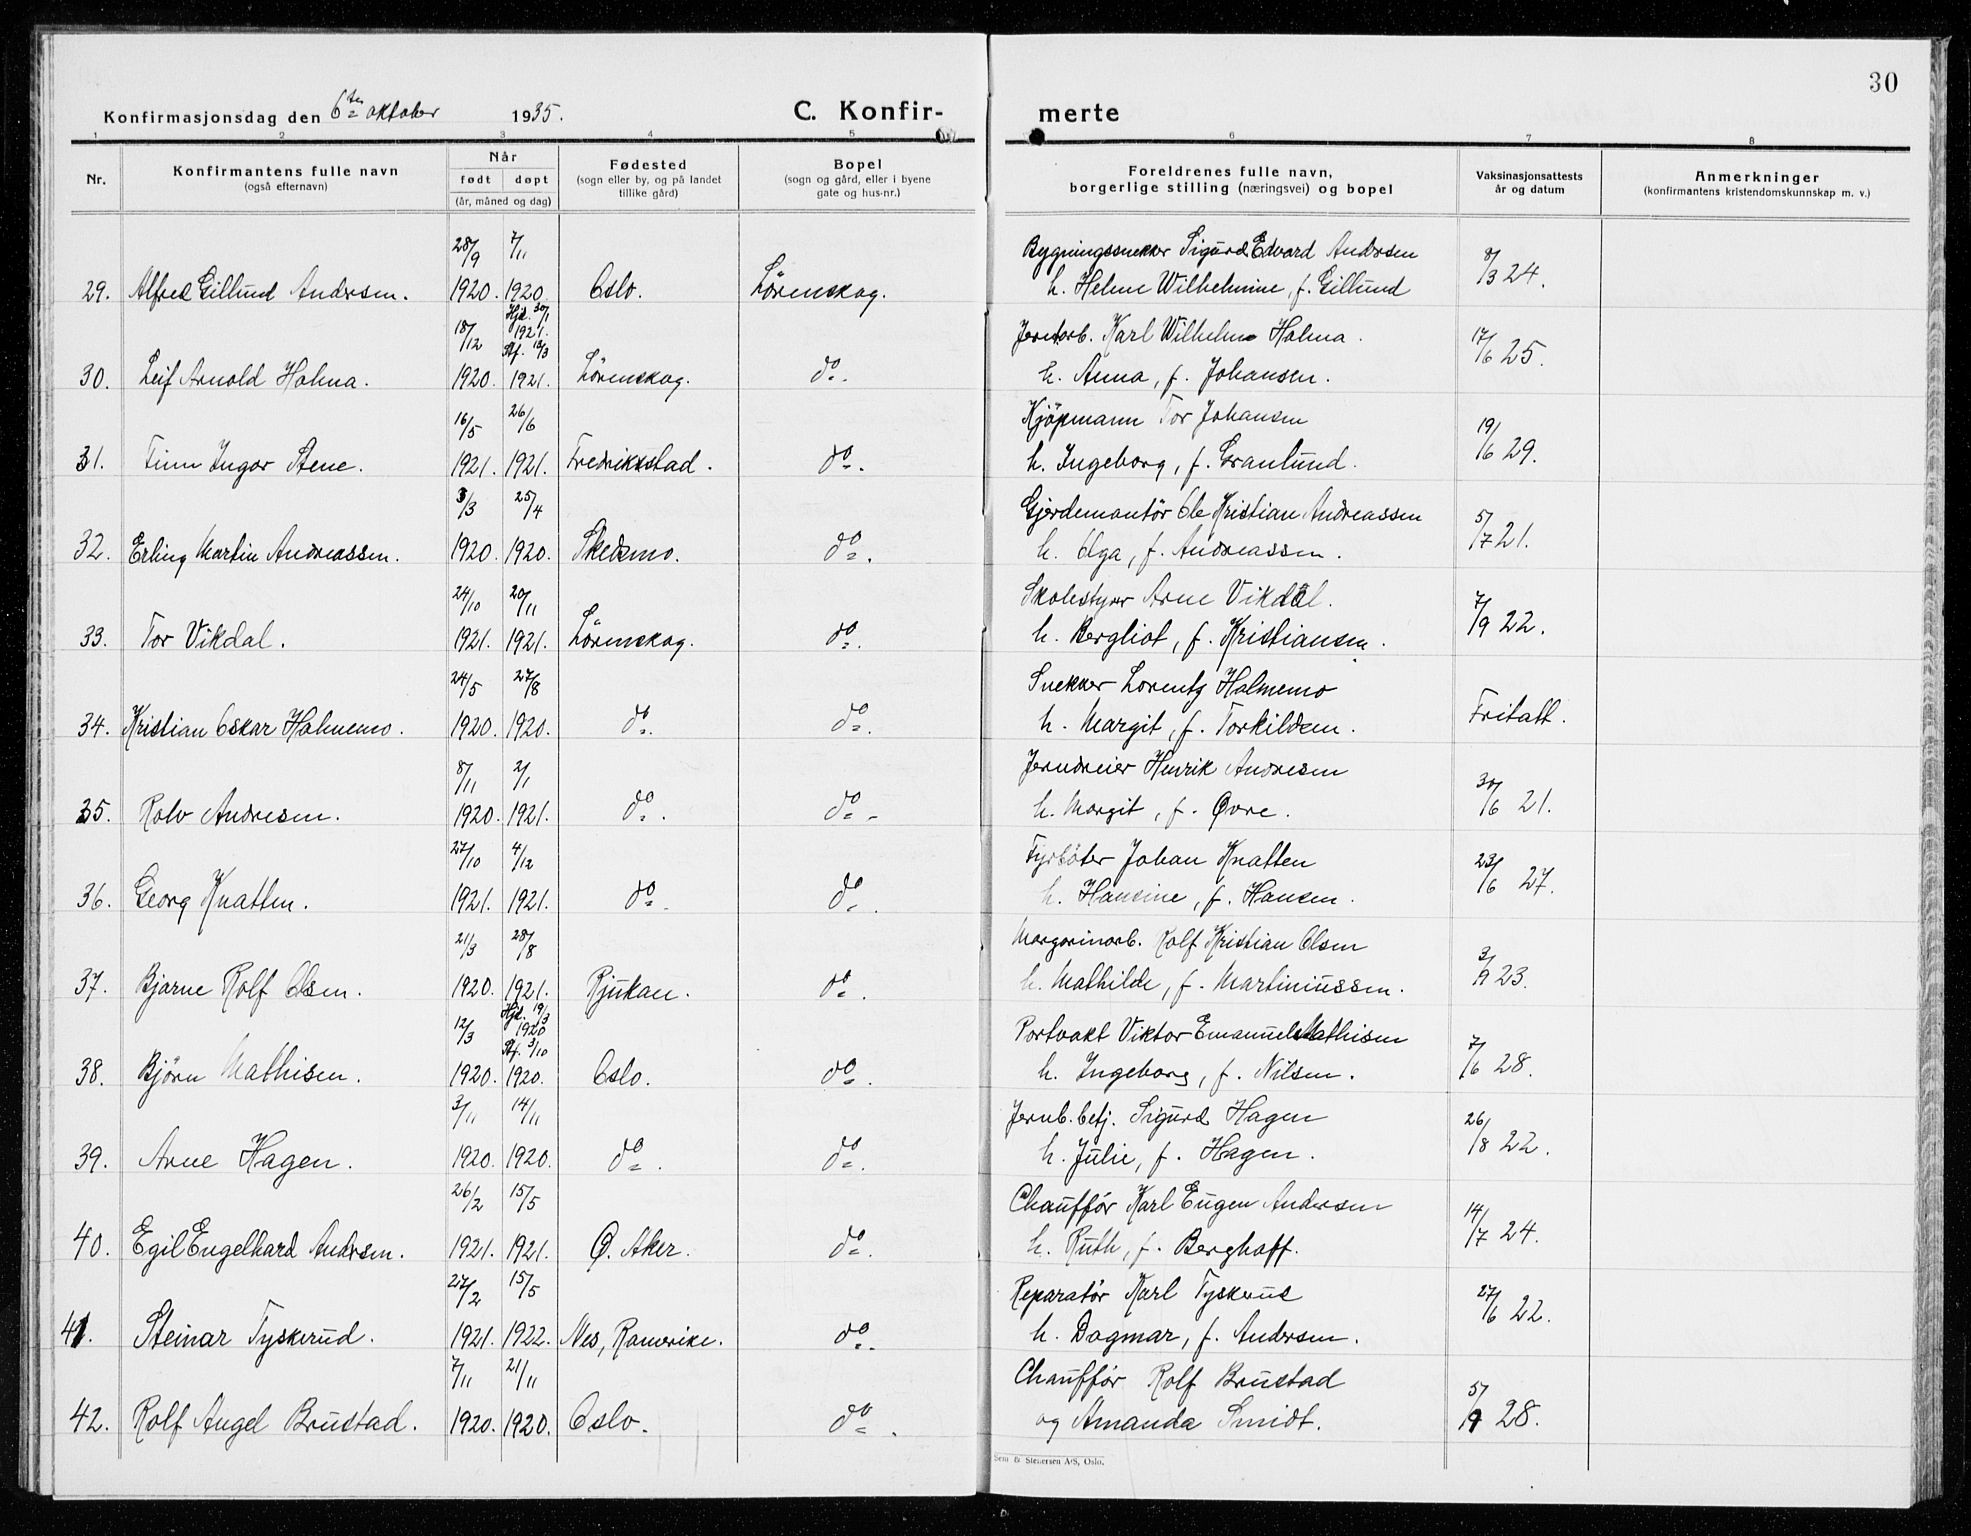 30
Konfirmasjonsdag den 6te oktober 1935. C. Konfir- merte
1 2 3 4 5 6 7 8
Nr. Konfirmantens fulle navn (også efternavn) Når født døpt (år, måned og dag) Fødested (sogn eller by, og på landet tillike gård) Bopel (sogn og gård, eller i byene gate og hus-nr.) Foreldrenes fulle navn, borgerlige stilling (næringsvei) og bopel Vaksinasjonsattests år og datum Anmerkninger (konfirmantens kristendomskunnskap m. v.)
28/9 7/11 Bygningssnekker Sigurd Edvard Andersen 8/3 24.
29. Alfred Gillund Andersen. 1920. 1920. Oslo. Lörenskog. h. Helene Wilhelmine, f. Gillund
18/12 Hjd. 30/1 1921. Stf. 13/3 Jernarb. Karl Wilhelm Holma. 17/6 25.
30. Leif Arnold Holma. 1920. 1921. Lörenskog. do. h. Anna, f. Johansen.
16/5 26/6 Kjöpmann Tor Johansen 19/6 29.
31. Finn Ingar Stene. 1921. 1921. Fredrikkstad. do. h. Ingeborg, f. Granlund.
3/3 25/4 Gjerdemontör Ole Kristian Andreassen 5/7 21.
32. Erling Martin Andreassen. 1920. 1920. Skedsmo. do. h. Olga, f. Andreassen.
24/10 20/11 Skolestyrer Arne Vikdal. 7/9 22.
33. Tor Vikdal. 1921. 1921. Lörenskog. do. h. Bergliot, f. Kristiansen.
24/5 27/8 Snekker Lorentz Holmemo Fritatt.
34. Kristian Oskar Holmemo. 1920. 1920. do. do. h. Margit, f. Torkildsen.
8/11 2/1 Jerndreier Henrik Andresen 30/6 21.
35. Rolv Andresen. 1920. 1921. do. do. h. Margit, f. Øvre.
27/10 4/12 Fyrböter Johan Knatten 23/6 27.
36. Georg Knatten. 1921. 1921. do. do. h. Hansine, f. Hansen.
21/3 28/8 Margarinarb. Rolf Kristian Olsen 3/9 23.
37. Bjarne Rolf Olsen. 1920. 1921. Rjukan. do. h. Mathilde, f. Martiniussen.
12/3 Hjd. 19/3 1920 Stf. 3/10 Portvakt Viktor Emanuel Mathisen 7/6 28.
38. Björn Mathisen. 1920. 1920. Oslo. do. h. Ingeborg, f. Nilsen.
3/11 14/11 Jernb.betj. Sigurd Hagen 26/8 22.
39. Arne Hagen. 1920. 1920. do. do. h. Julie, f. Hagen.
26/2 15/5 Chauffør Karl Eugen Andersen 14/7 24.
40. Egil Engelhard Andersen. 1921. 1921. Ø. Aker. do. h. Ruth, f. Berghoff.
27/2 15/5 Reparatør Karl Tyskerud 27/6 22.
41. Steinar Tyskerud. 1921. 1922. Nes, Romerike. do. h. Dagmar, f. Andersen.
7/11 21/11 Chauffør Rolf Brustad 5/9 28.
42. Rolf Angel Brustad. 1920. 1920. Oslo. do. og Amanda Smidt.
Sem & Stenersen A/S, Oslo.